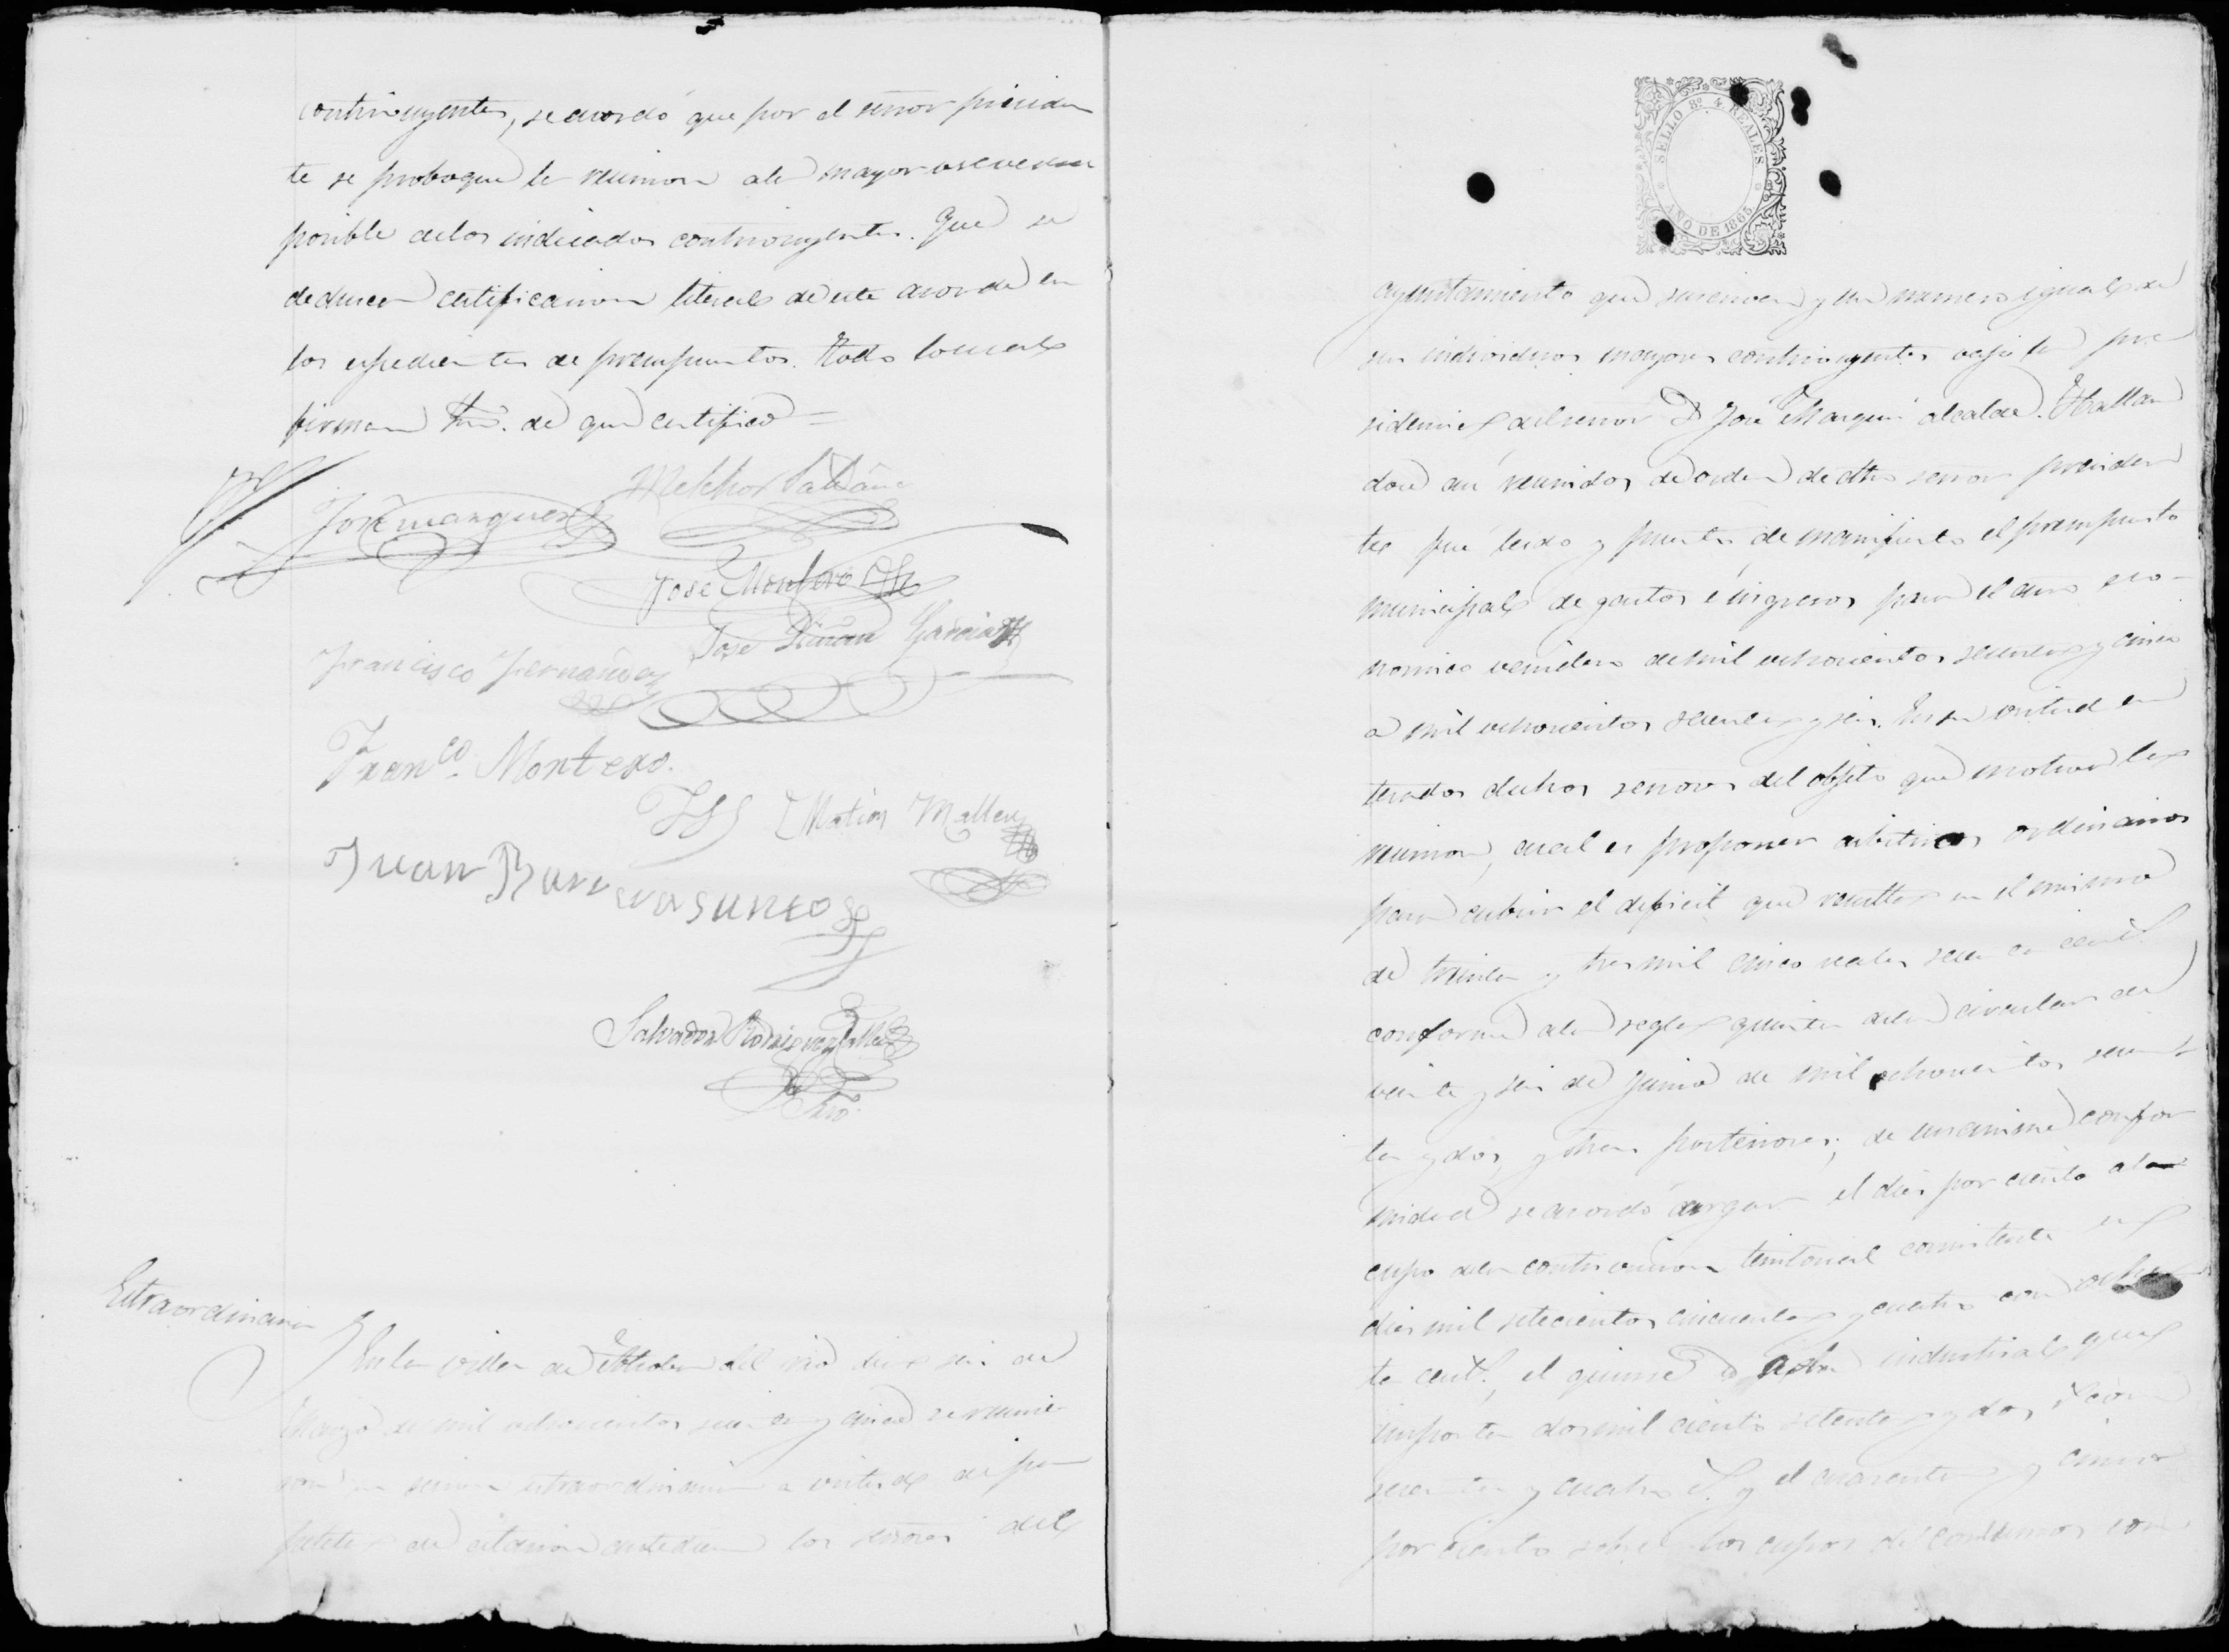 contribuyentes, se acordó que por el señor presiden
te se proboque la reunion a la mayor
posible de los indicados contribuyentes. Que se
deduzca certificacion literal de este acorde en
los espedientes de presupuestos. Todo lo cual
firman de que certifico =
Melchor
Jose marquez
Jose Montero
Jose Duran Garcia
Francisco Fernandez
Franco. Montero.
Matias Mallen
Juan
Salvador Rodriguez
Srio.
Estraordinaria
En la villa de del rio dies y seis de
Marzo de mil ochocientos sesenta y cinco se reunie
ron en sesion estraordinaria a virtud de pa
peleta de citacion antediem los señores del
SELLO 8º 4 REALES
AÑO DE 1865
ayuntamiento que suscriven y un numero igual de
sus individuos mayores contribuyentes vajo la pre
sidencia del señor D. José Marquez alcalde. Hallan
dose asi reunidos de orden de dho señor presiden
te fue leido y puesto de manifiesto el presupuesto
municipal de gastos é ingresos para el año eco-
nomico venidero de mil ochocientos sesenta y cinco
a mil ochocientos sesenta y seis. En su virtud en
terados dichos señores del objeto que motiva la
reunion, cual es proponer arbitrios ordinarios
para cubrir el deficit que resulta en el mismo
de treinta y tres mil cinco reales
conforme a la regla quinta de la circular de
veinte y seis de junio de mil ochocientos sesen
ta y dos, y otras posteriores; de unanime confor
midad se acordó cargar el dies por ciento al
cupo de la contribucion territorial consistente en
dies mil setecientos cincuenta y cuatro con
ta cents., el quinse a la industrial que
importa dos mil ciento setenta y dos con
sesenta y cuatro y el cuarenta y cinco
por ciento sobre los cupos de consumos con